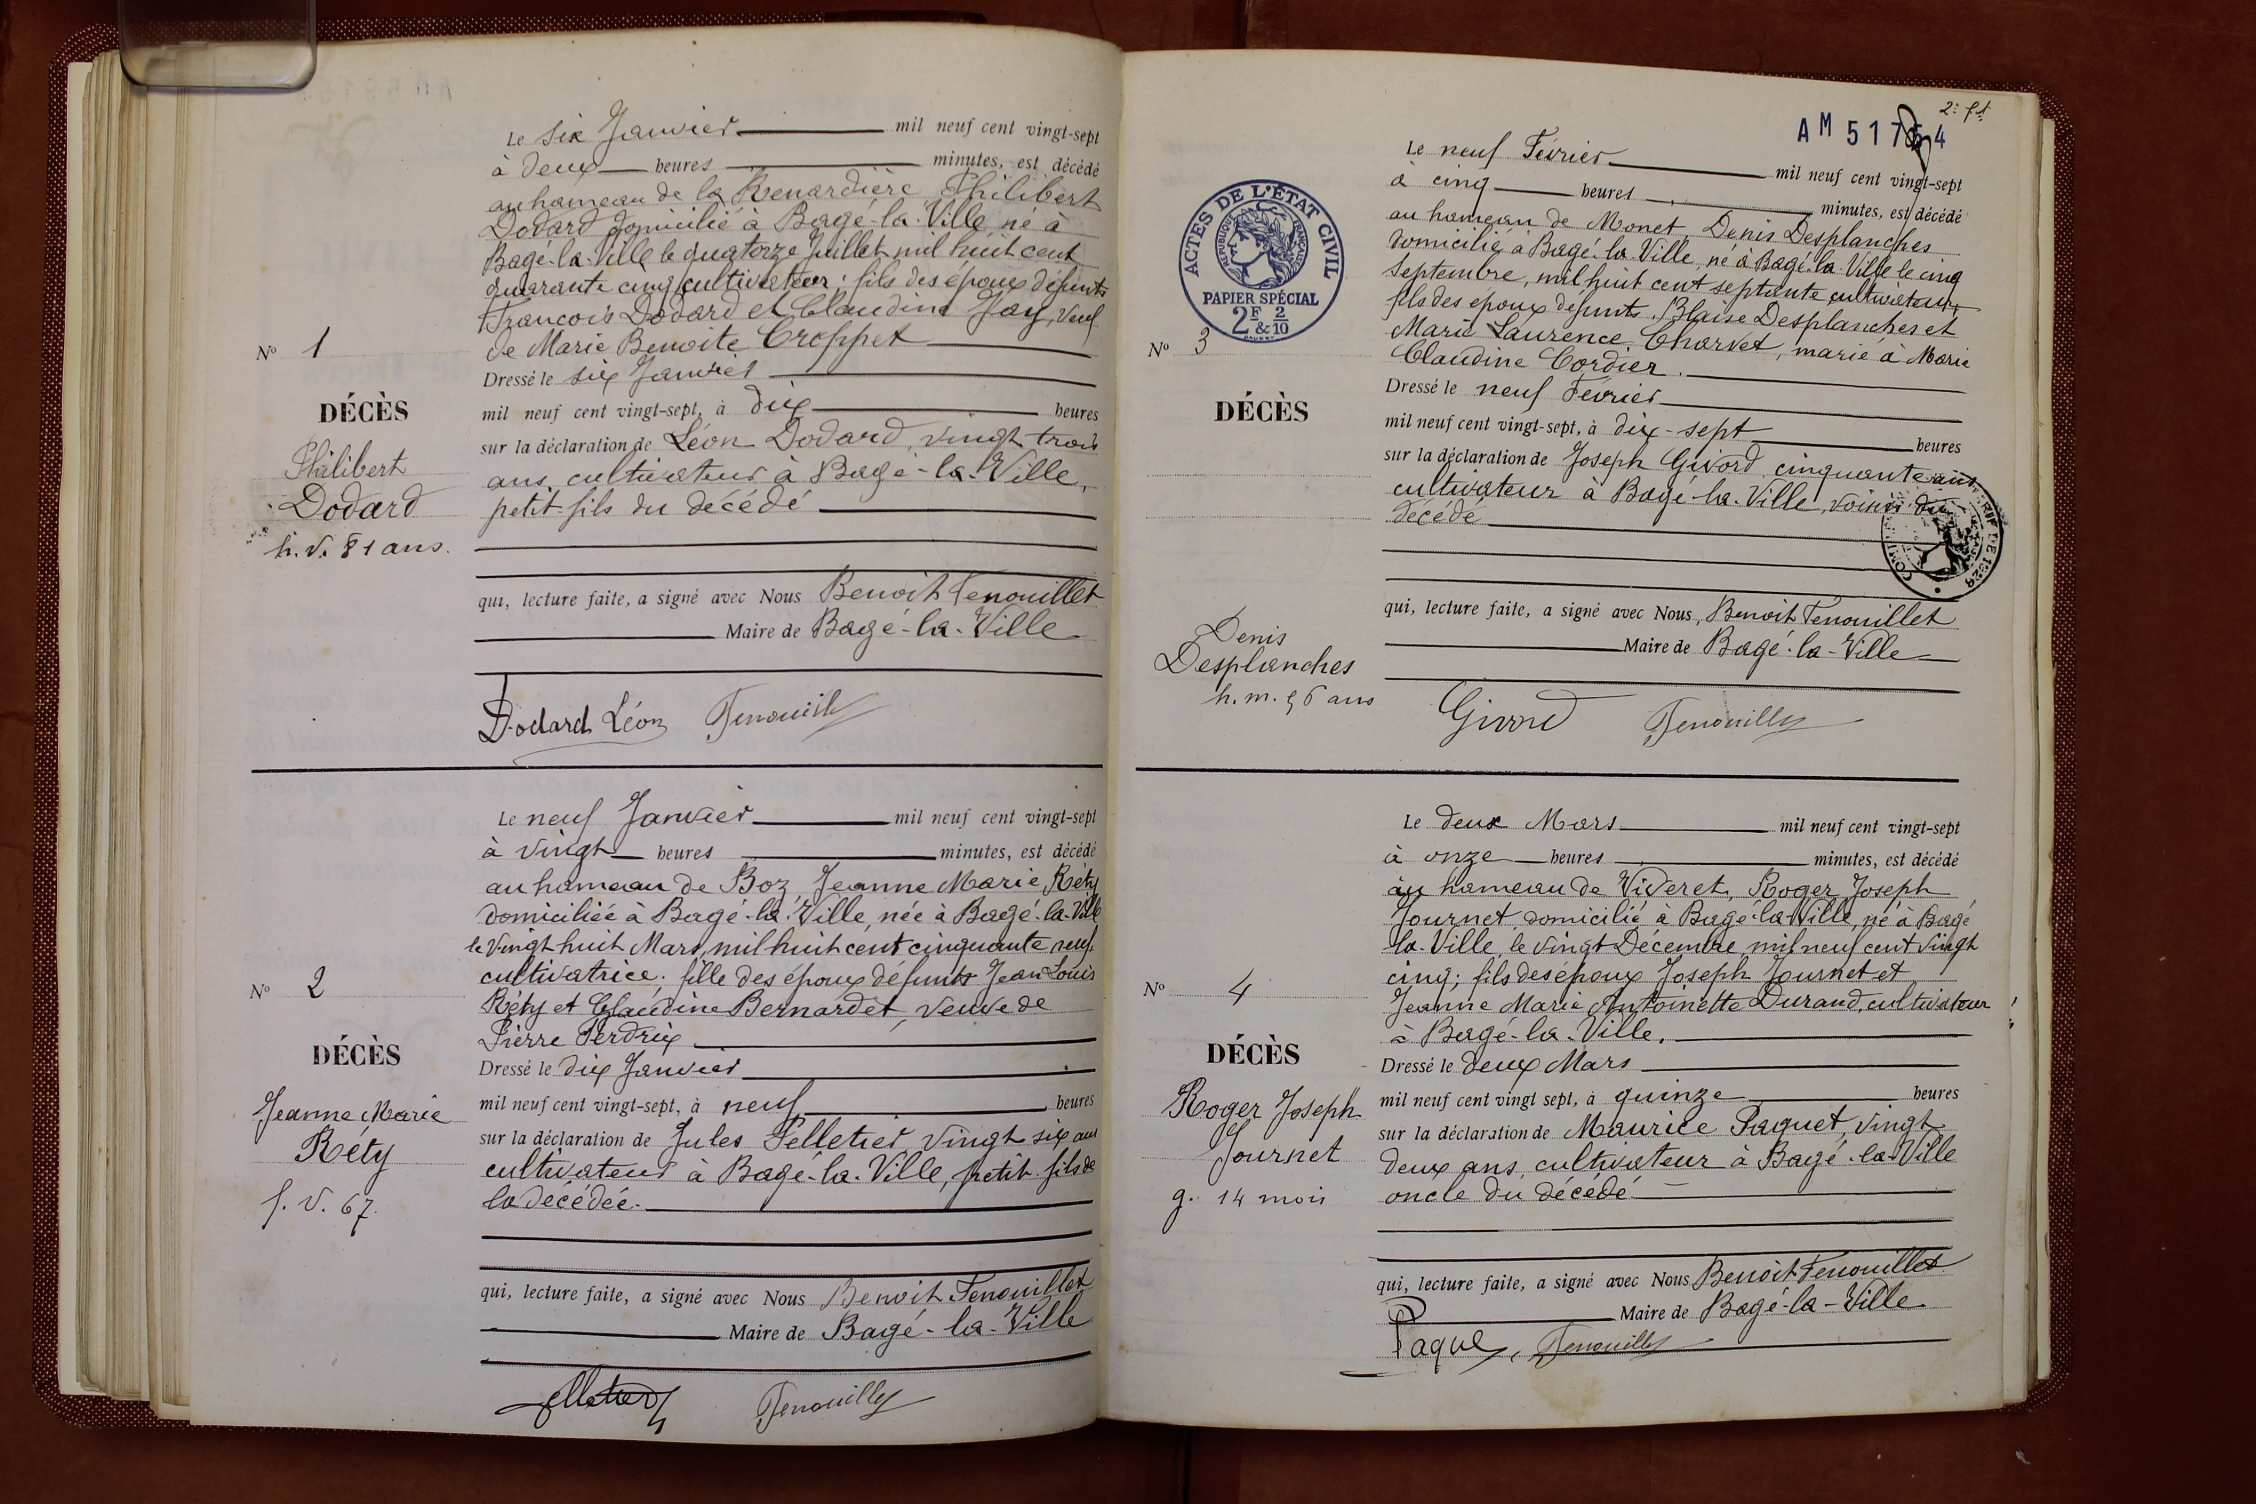 Le six Janvier mil neuf cent vingt-sept
à deux heures minutes, est décédé
au hameau de la Renardière Philibert
Dodard domicilié à Bagé-la-Ville, né à
Bagé-la-Ville le quatorze Juillet mil huit cent
quarante cinq cultivateur; fils des époux défunts
François Dodard et Claudine Jay, veuf
de Marie Benoite Croppet
Nº 1
Dressé le six Janvier
DÉCÈS
mil neuf cent vingt-sept, à dix heures
sur la déclaration de Léon Dodard, vingt trois
Philibert
ans, cultivateur à Bagé-la-Ville,
Dodard
petit-fils du décédé
h. v. 81 ans.
qui, lecture faite, a signé avec Nous Benoit Fenouillet
Maire de Bagé-la-Ville
Dodard Léon Fenouillet
Le neuf Janvier mil neuf cent vingt-sept
à vingt heures minutes, est décédé
au hameau de Boz, Jeanne Marie Réty
domiciliée à Bagé-la-Ville, née à Bagé-la-Ville
le vingt huit Mars, mil huit cent cinquante neuf
cultivatrice; fille des époux défunts Jean Louis
Nº 2
Réty et Claudine Bernardet, veuve de
Pierre Perdrix
DÉCÈS
Dressé le dix Janvier
Jeanne Marie
mil neuf cent vingt-sept, à neuf heures
Réty
sur la déclaration de Jules Pelletier, vingt six ans
cultivateur à Bagé-la-Ville, petit fils de
f. v. 67
la décédée.
qui, lecture faite, a signé avec Nous Benoit Fenouillet
Maire de Bagé-la-Ville
Pelletier Fenouillet
2e ft
AM 517 4
ACTES DE L'ÉTAT CIVIL
RÉPUBLIQUE FRANÇAISE
PAPIER SPÉCIAL
2F & 2/10
Le neuf Février mil neuf cent vingt-sept
à cinq heures minutes, est décédé
au hameau de Monet, Denis Desplanches
domicilié à Bagé-la-Ville, né à Bagé-la-Ville le cinq
Septembre, mil huit cent septante cultivateur,
fils des époux défunts, Blaise Desplanches et
Marie Laurence Charvet, marié à Marie
Nº 3
Claudine Cordier.
Dressé le neuf Février
DÉCÈS
mil neuf cent vingt-sept, à dix-sept heures
sur la déclaration de Joseph Givord cinquante ans
cultivateur à Bagé-la-Ville, voisin du
décédé
qui, lecture faite, a signé avec Nous, Benoit Fenouillet
Denis
Maire de Bagé-la-Ville
Desplanches
h. m. 56 ans
Givord Fenouillet
Le deux Mars mil neuf cent vingt-sept
à onze heures minutes, est décédé
au hameau de Videret, Roger Joseph
Journet domicilié à Bagé-la-Ville, né à Bagé
la-Ville, le vingt Décembre mil neuf cent vingt
cinq; fils des époux Joseph Journet et
Nº 4
Jeanne Marie Antoinette Durand, cultivateur
à Bagé-la-Ville.
DÉCÈS
Dressé le deux Mars
Roger Joseph
mil neuf cent vingt sept, à quinze heures
Journet
sur la déclaration de Maurice Paquet, vingt
deux ans cultivateur à Bagé-la-Ville
g. 14 mois
oncle du décédé
qui, lecture faite, a signé avec Nous Benoit Fenouillet
Maire de Bagé-la-Ville
Paquet, Fenouillet